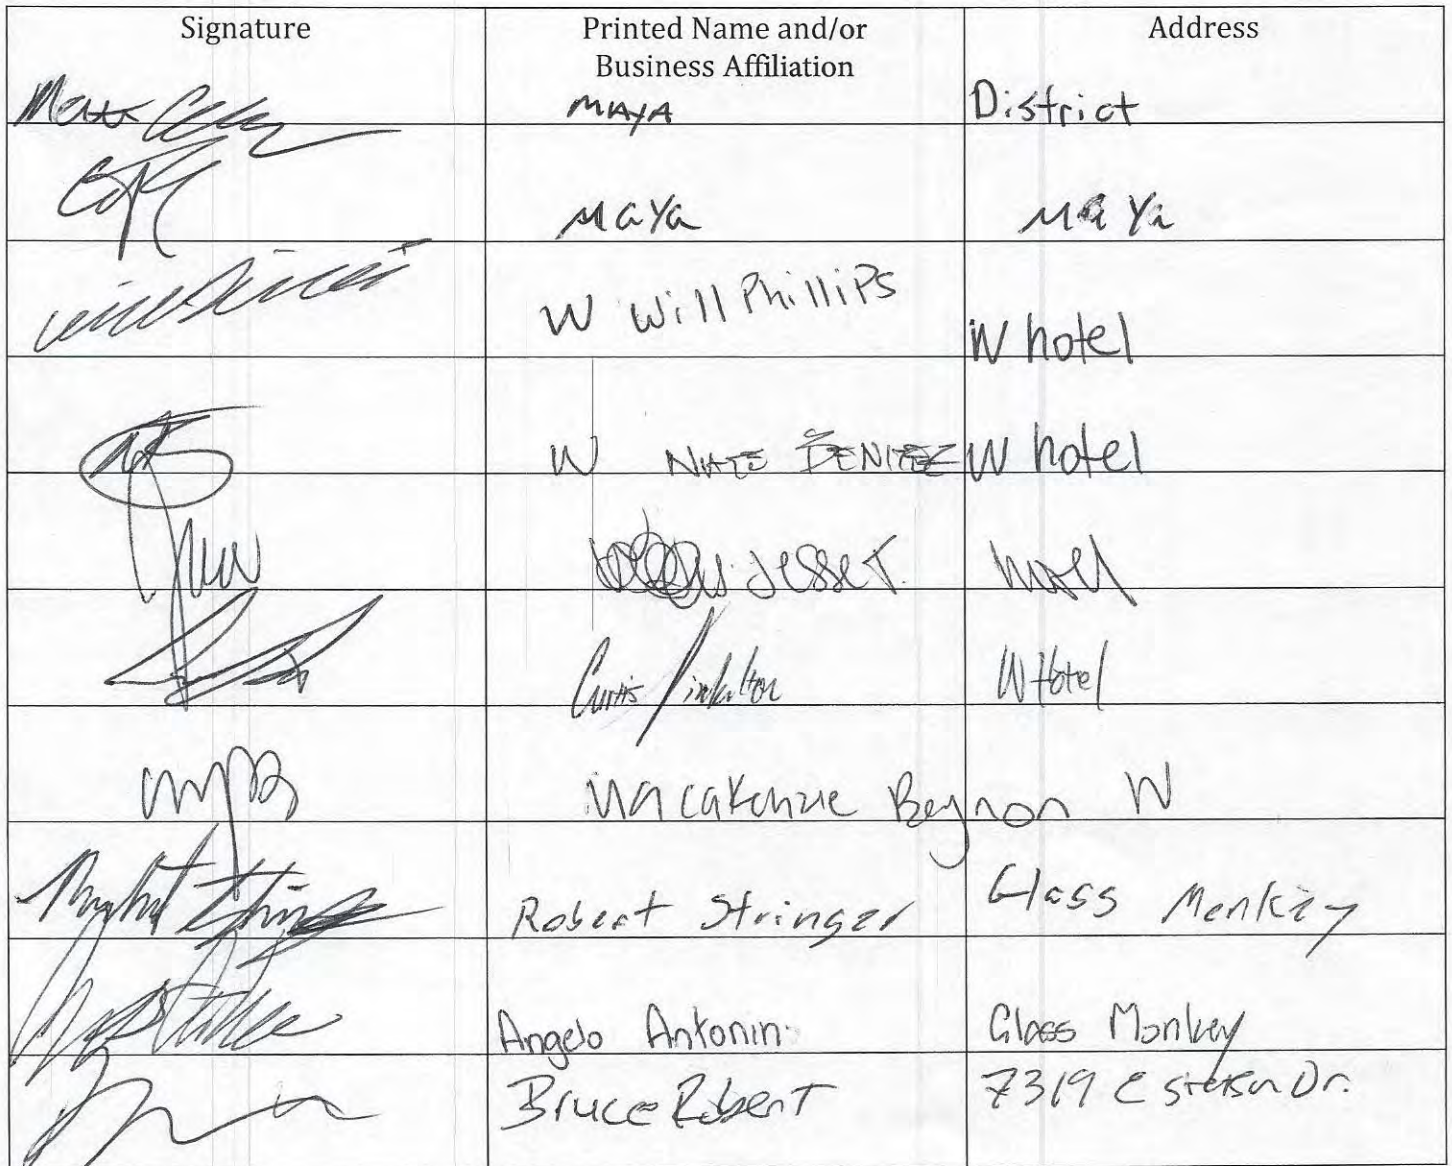 Signature Printed Name and/or Address
Business Affiliation
Matt MAYA District
MaYa MaYa
W Will PhilliPS W hotel
W NATE BENITEZ W hotel
Jesse T.
Curtis Pinkelton W Hotel
Macakenzie Beynon W
Robert Stringer Glass Monkey
Angelo Antonini Glass Monkey
Bruce Robert 7319 E Stetson Dr.